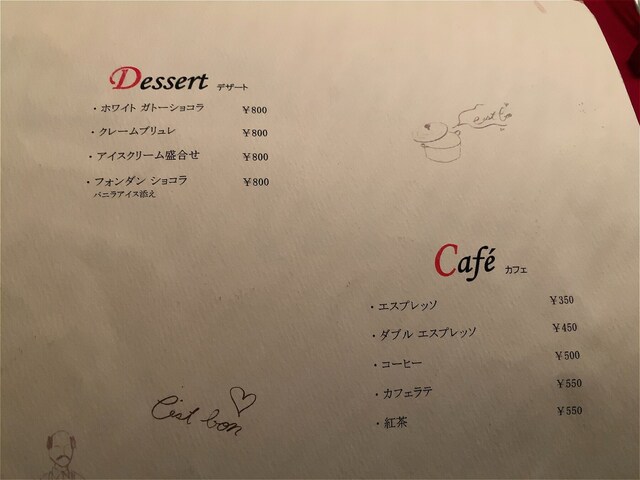 Dessert デザート
・ホワイト ガトーショコラ ￥800
・クレームブリュレ ￥800
・アイスクリーム盛合せ ￥800
・フォンダン ショコラ ￥800
バニラアイス添え
Café カフェ
・エスプレッソ ￥350
・ダブル エスプレッソ ￥450
・コーヒー ￥500
・カフェラテ ￥550
・紅茶 ￥550
C'est bon